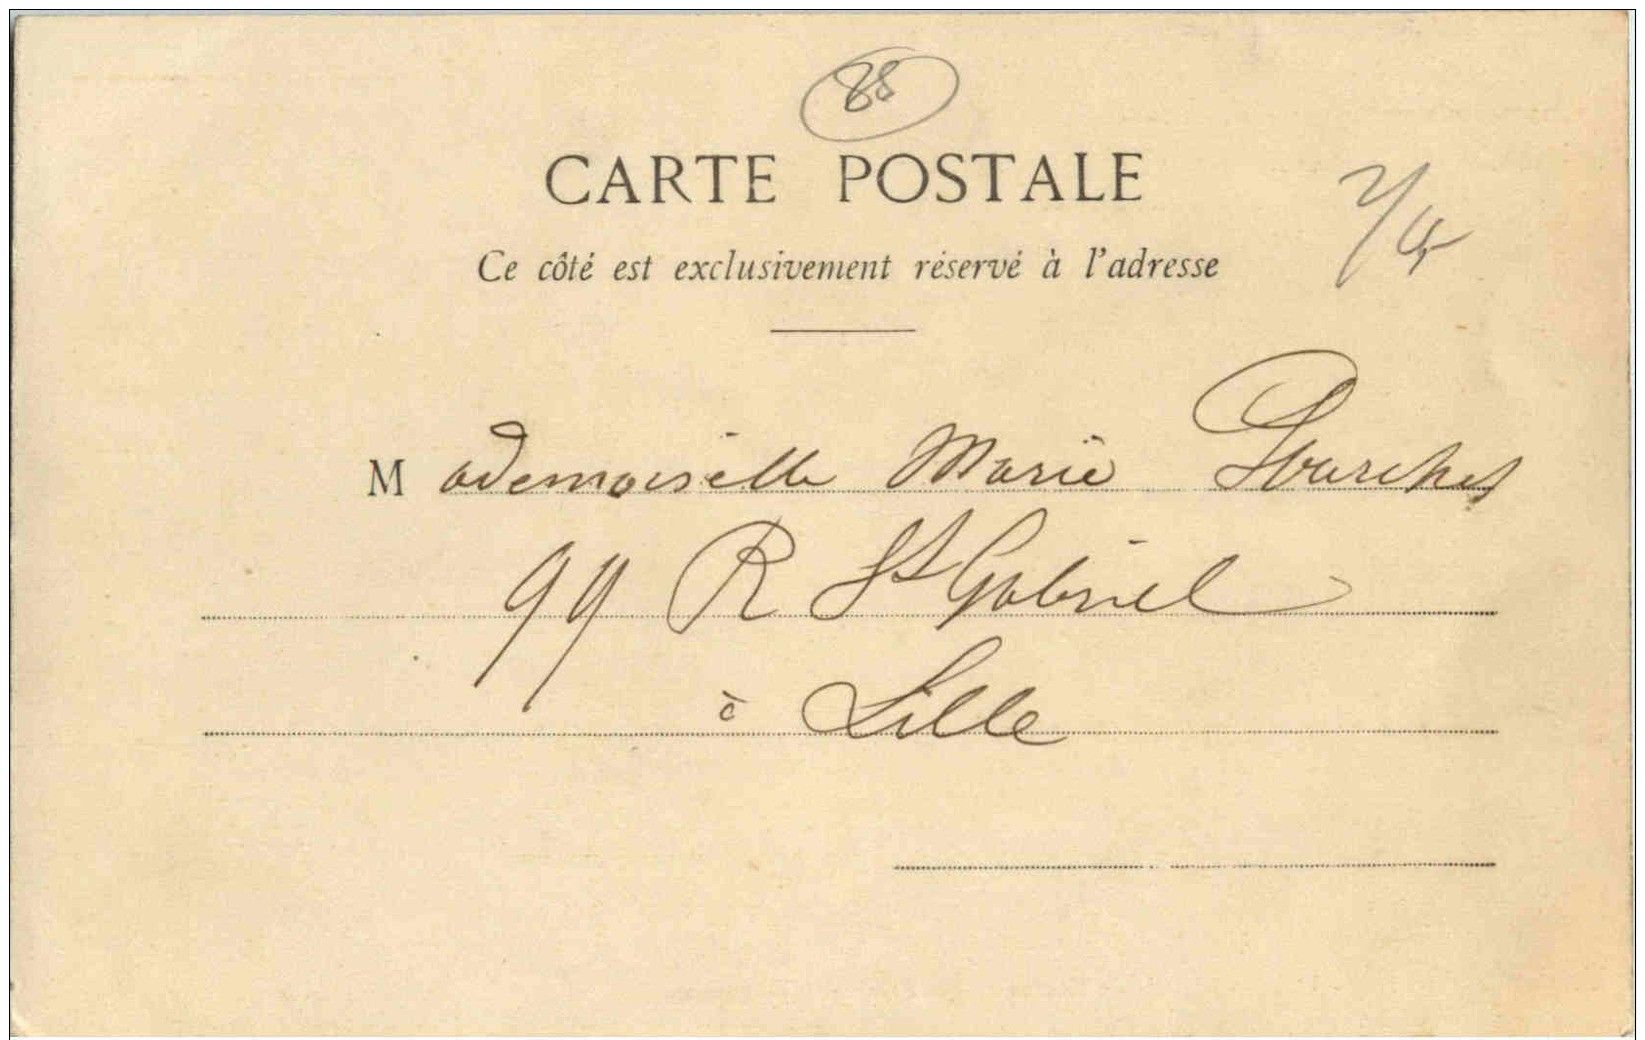 88
CARTE POSTALE
Ce côté est exclusivement réservé à l'adresse
Mademoiselle Marie
99 R St Gabriel
à Lille